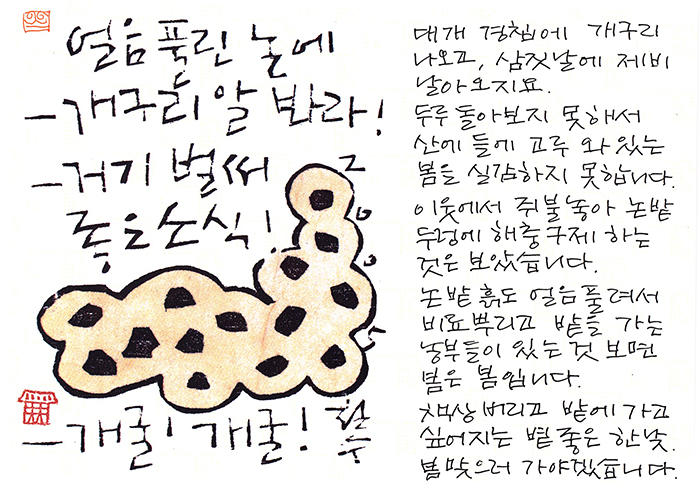 얼음 풀린 논에
- 개구리 알 봐라!
- 거기 벌써
좋은 소식!
2005
- 개굴! 개굴!
철수
대개 경칩에 개구리
나오고, 삼짓날에 제비
날아오지요.
두루 돌아보지 못해서
산에 들에 고루 와 있는
봄을 실감하지 못합니다.
이웃에서 쥐불놓아 논밭
두렁에 해충구제 하는
것은 보았습니다.
논밭 흙도 얼음 풀려서
비료뿌리고 밭을 가는
농부들이 있는 것 보면
봄은 봄입니다.
책상 버리고 밭에 가고
싶어지는 볕 좋은 한낮.
봄맞으러 가야겠습니다.